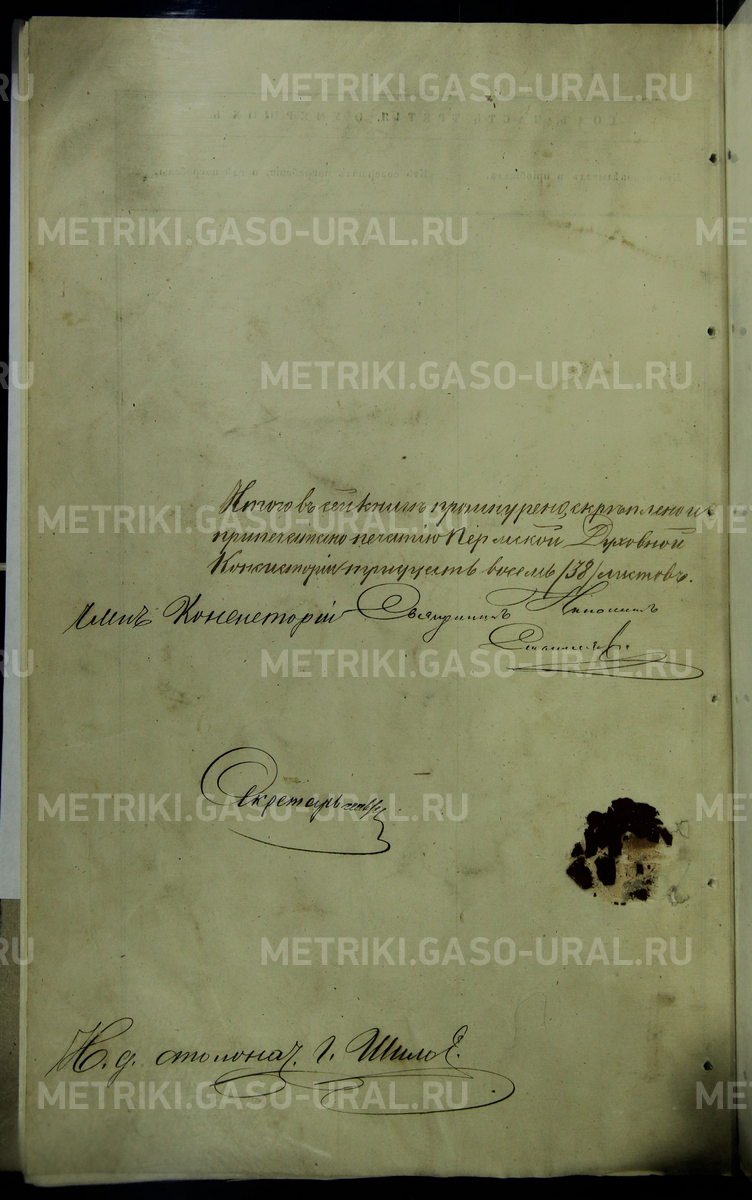 METRIKI.GASO-URAL.RU
METRIKI.GASO-URAL.RU
METRIKI.GASO-URAL.RU
METRIKI.GASO-URAL.RU
Итого въ сей книгѣ прошнуровано, скрѣплено и
припечатано печатію Пермской Духовной
Консисторіи тридцать восемь /38/ листовъ.
Членъ Консисторіи Священникъ
METRIKI.GASO-URAL.RU
Секретарь
METRIKI.GASO-URAL.RU
METRIKI.GASO-URAL.RU
И. д. столонач. Г. Шилов
METRIKI.GASO-URAL.RU